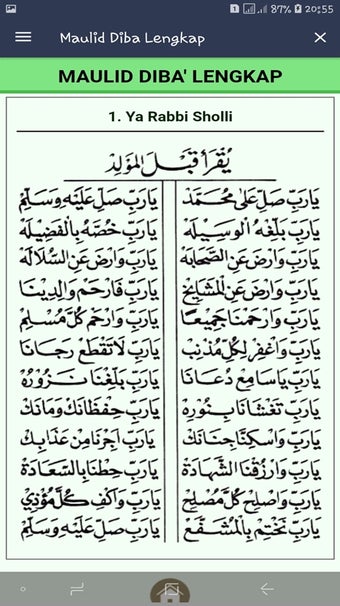 87% 20:55
Maulid Diba Lengkap
MAULID DIBA' LENGKAP
1. Ya Rabbi Sholli
يُقْرَأُ قَبْلَ الْمَوْلِدِ
يَارَبِّ صَلِّ عَلَى مُحَمَّدْ يَارَبِّ صَلِّ عَلَيْهِ وَسَلِّمْ
يَارَبِّ بَلِّغْهُ الْوَسِيْلَهْ يَارَبِّ خُصَّهُ بِالْفَضِيْلَهْ
يَارَبِّ وَارْضَ عَنِ الصَّحَابَهْ يَارَبِّ وَارْضَ عَنِ السُّلَالَهْ
يَارَبِّ وَارْضَ عَنِ الْمَشَايِخْ يَارَبِّ فَارْحَمْ وَالِدِيْنَا
يَارَبِّ وَارْحَمْنَا جَمِيْعًا يَارَبِّ وَارْحَمْ كُلَّ مُسْلِمْ
يَارَبِّ وَاغْفِرْ لِكُلِّ مُذْنِبْ يَارَبِّ لَا تَقْطَعْ رَجَانَا
يَارَبِّ يَاسَامِعْ دُعَانَا يَارَبِّ بَلِّغْنَا نَزُوْرُهْ
يَارَبِّ تَغْشَانَا بِنُوْرِهْ يَارَبِّ حِفْظَانَكْ وَمَانَكْ
يَارَبِّ وَاسْكِنَّا جِنَانَكْ يَارَبِّ اَجِرْنَا مِنْ عَذَابِكْ
يَارَبِّ وَارْزُقْنَا الشَّهَادَةْ يَارَبِّ حِطْنَا بِالسَّعَادَةْ
يَارَبِّ وَاصْلِحْ كُلَّ مُصْلِحْ يَارَبِّ وَاكْفِ كُلَّ مُؤْذِيْ
يَارَبِّ نَخْتِمْ بِالْمُشَفَّعْ يَارَبِّ صَلِّ عَلَيْهِ وَسَلِّمْ